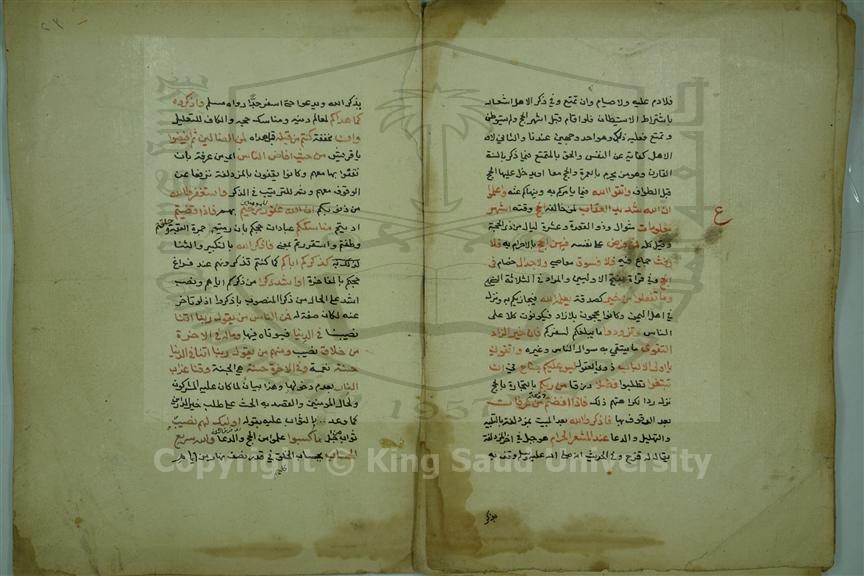 فلا دم عليه ولا صيام وان تمتع وفي ذكر الاهل اشعار
باشتراط الاستيطان فلو اقام قبل اشهر الحج ولم يستوطن
وتمتع فعليه ذلك وهو احد وجهين عندنا والثاني لا و
الاهل كناية عن النفس والحق بالمتمتع فيما ذكر بالسنة
القارن وهو من يحرم بالعمرة والحج معا او يدخل عليها الحج
قبل الطواف واتقوا الله فيما يامركم به وينهاكم عنه واعلموا
ان الله شديد العقاب لمن خالفه الحج وقته اشهر
معلومات شوال وذو القعدة وعشر ليال من ذي الحجة
وقيل كله فمن فرض على نفسه فيهن الحج بالاحرام به فلا
رفث جماع فيه ولا فسوق معاصي ولا جدال خصام في
الحج وفي قراة بفتح الاولين والمراد في الثلاثة النهي
وما تفعلوا من خير كصدقة يعلمه الله فيجازيكم به ونزل
في اهل اليمن وكانوا يحجون بلا زاد فيكونون كلا على
الناس وتزودوا ما يبلغكم لسفركم فان خير الزاد
التقوى ما يتقى به سوال الناس وغيره واتقون
يا اولي الالباب ذوي العقول ليس عليكم جناح في ان
تبتغوا تطلبوا فضلا رزقا من ربكم بالتجارة بالحج
نزل ردا لكراهتهم ذلك فاذا افضتم من عرفات
بعد الوقوف بها فاذكروا الله بعد المبيت بمزدلفة بالتلبية
والتهليل والدعا عند المشعر الحرام هو جبل في اخر المزدلفة
يقال له قزح وفي الحديث انه صلى الله عليه وسلم وقف به
يذكر الله ويدعوا حتى اسفر جدا رواه مسلم واذكروه
كما هداكم لمعالم دينه ومناسك حجه والكاف للتعليل
وان مخففة كنتم من قبله قبل هداه لمن الضالين ثم افيضوا
يا قريش من حيث افاض الناس اي من عرفة بان
تقفوا بها معهم وكانوا يقفون بالمزدلفة ترفعا عن
الوقوف معهم وثم للترتيب في الذكر واستغفروا الله
من ذنوبكم ان الله غفور رحيم بهم فاذا قضيتم
اديتم مناسككم عبادات حجكم بان رميتم جمرة العقبة وحلقتم
وطفتم واستقررتم بمنى فاذكروا الله بالتكبير والثنا
كذكركم اباكم كما كنتم تذكرونهم عند فراغ
حجكم بالمفاخرة او اشد ذكرا من ذكركم اياهم ونصب
اشد على الحال من ذكرا المنصوب باذكروا اذ لو تاخر
عنه لكان صفة له فمن الناس من يقول ربنا اتنا
نصيبنا في الدنيا فيوتاه فيها وما له في الاخرة
من خلاق نصيب ومنهم من يقول ربنا اتنا في الدنيا
حسنة نعمة وفي الاخرة حسنة هي الجنة وقنا عذاب
النار بعدم دخولها وهذا بيان لما كان عليه المشركون
ولحال المومنين والقصد به الحث على طلب خير الدارين
كما وعد بالثواب عليه بقوله اوليك لهم نصيب
ثواب من اجل ما كسبوا عملوا من الحج والدعا والله سريع
الحساب يحاسب الخلق في قدر نصف نهار من ايام